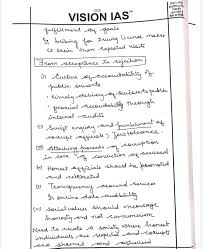 VISION IAS
fulfilment of goals
Eg bribing for driving licence makes
it seem than repeated visits
From acceptance to rejection
(i) Culture of accountability of
public servants
- timely delivery of services to public
- financial accountability through
internal audits
(ii) Swift enquiry and punishment of
corrupt officials;
(iii) Attaching properties of corruption
in case of conviction of accused
(iv) Honest officials should be promoted
and celebrated
(v) Transparency around services
Eg online date availability
(vi) Social values should encourage
honesty and not consumerism
Need to create a society where honest
individuals are respected and corrupts
are shamed and activised